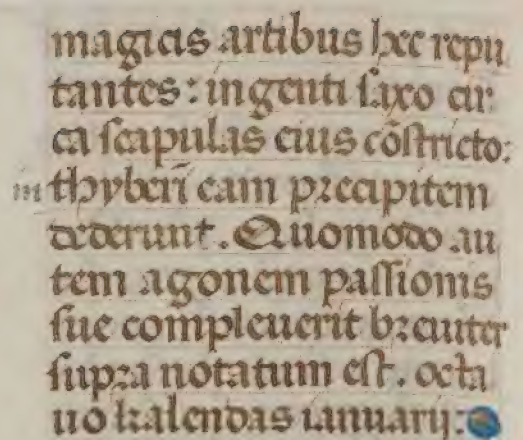 magicis artibus hec repu
tantes: ingenti saxo cir
ca scapulas eius cōstricto:
in thyberī eam precipitem
dederunt. Quomodo au
tem agonem passionis
sue compleuerit breuiter
supra notatum est. octa
uo kalendas ianuarij: